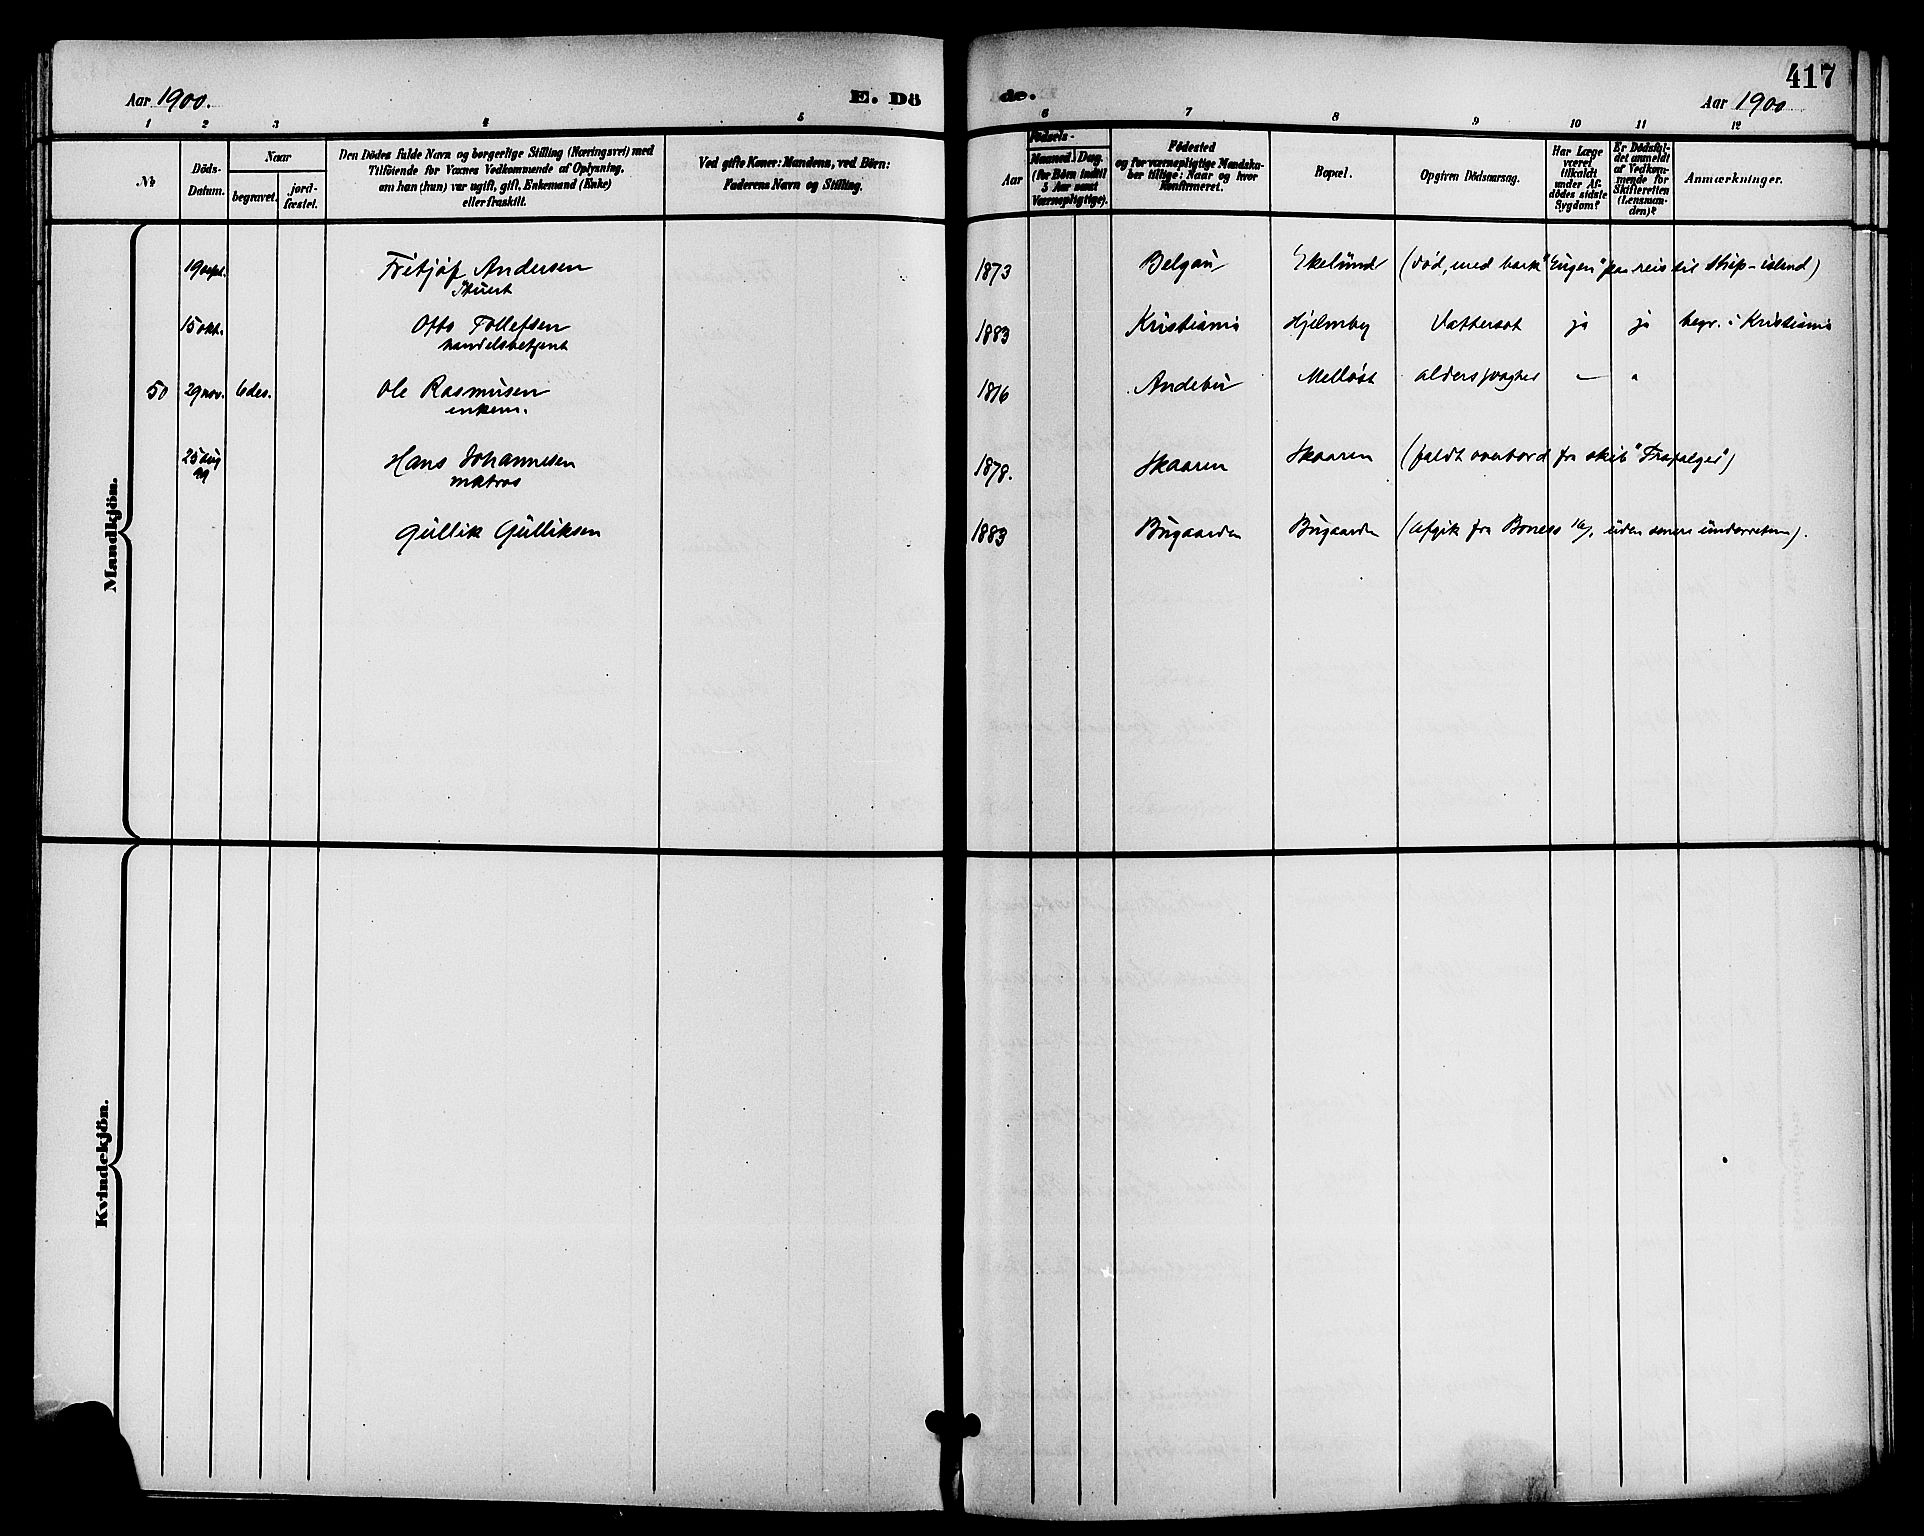 417
Aar 1900.
E. Dö
de.
Aar 1900
1 2 3 4 5 6 7 8 9 10 11 12
No
Döds-
Datum.
Naar
begravet.
jord-
fæstet.
Den Dödes fulde Navn og borgerlige Stilling (Næringsvei) med
Tilföiende for Voxnes Vedkommende af Oplysning,
om han (hun) var ugift, gift, Enkemand (Enke)
eller fraskilt.
Ved gifte Koner: Mandens, ved Börn:
Faderens Navn og Stilling.
Födsels-
Aar
Maaned. Dag.
(for Börn indtil
5 Aar samt
Værnepligtige).
Födested
og for værnepligtige Mandska-
ber tillige: Naar og hvor
Konfirmeret.
Bopæl.
Opgiven Dödsaarsag.
Har Læge
været
tilkaldt
under Af-
dödes sidste
Sygdom?
Er Dödsfal-
det anmeldt
af Vedkom-
mende for
Skifteretten
(Lensman-
den)?
Anmærkninger.
Mandkjön.
19 sept. Fritjof Andersen 1873 Belgau Ekelund (död, med bark "Eugen" paa reis til Ship-island)
Stuert
15 okt. Otto Tollefsen 1883 Kristiania Hjelmby Vattersot ja ja begr. i Kristiania
handelsbetjent
50 29 nov. 6 des. Ole Rasmusen 1816 Andebu Melløst aldersvaghed — "
enkem.
25 aug Hans Johannesen 1878. Skaaren Skaaren (faldt overbord fra skib "Trafalger")
99 matros
Gullik Gulliksen 1883 Bugaarden Bugaarden (Afgik fra Boness uden senere underretnn).
Kvindekjön.